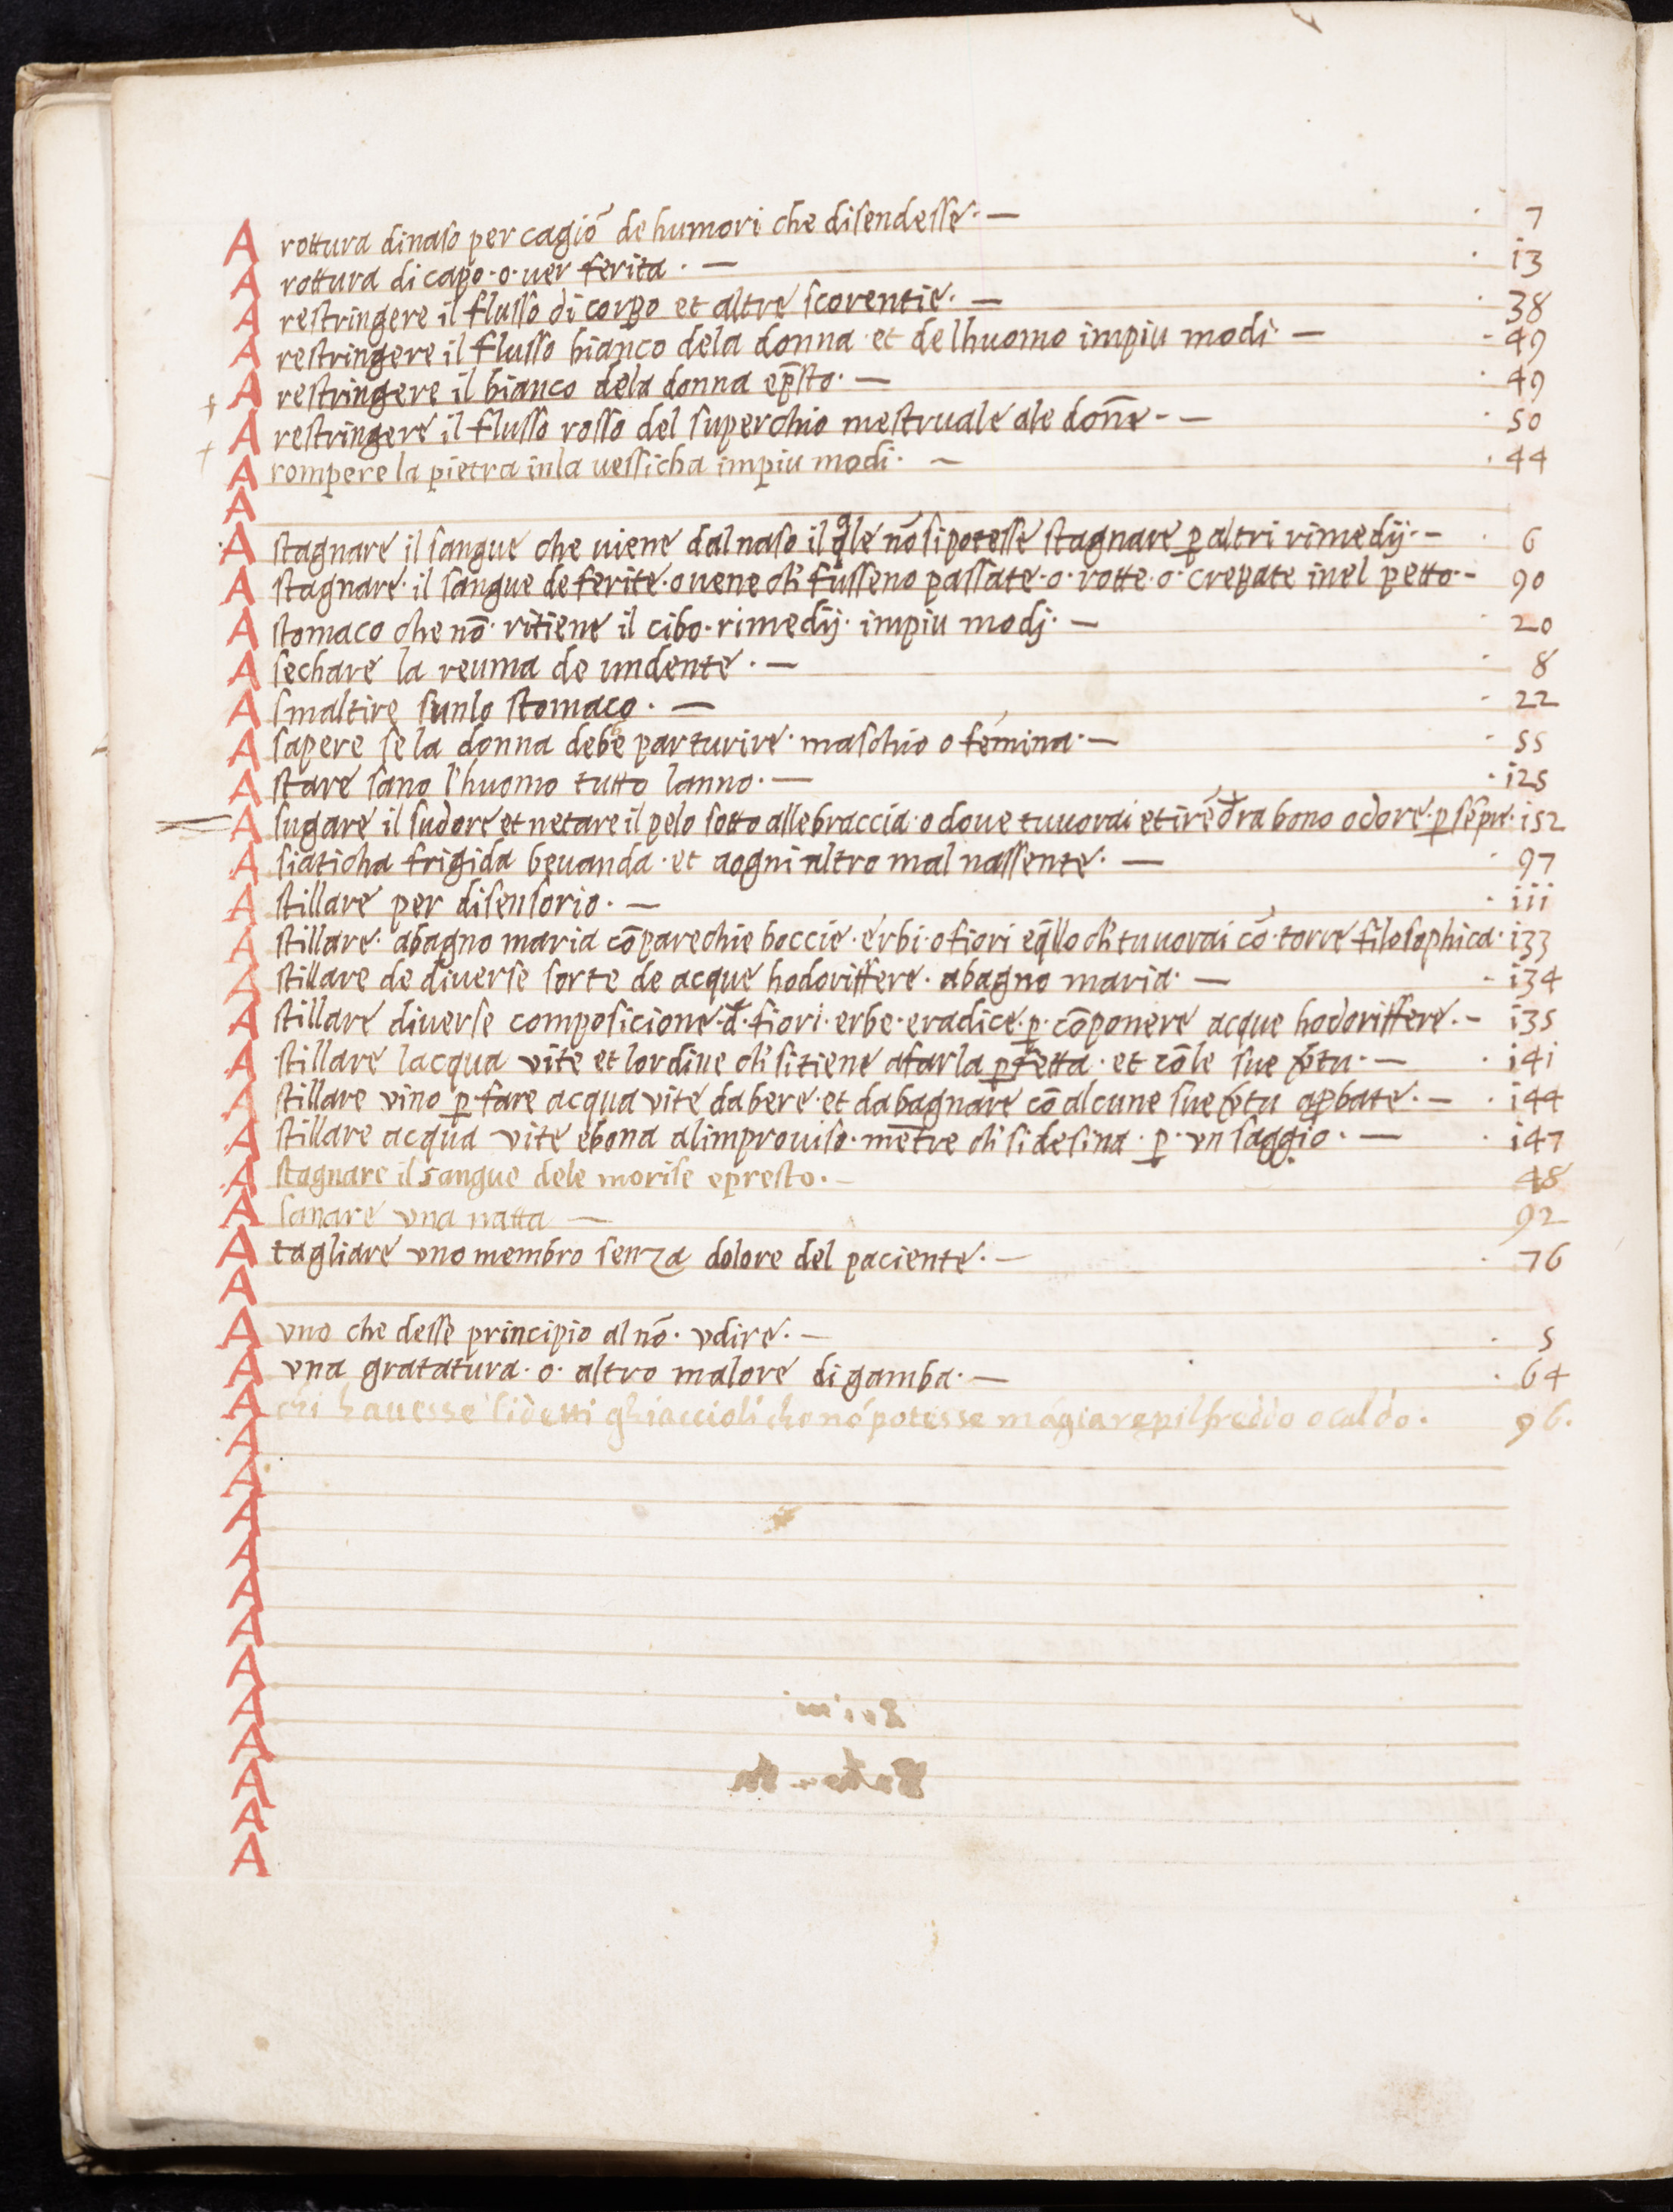 A rottura dinaso per cagiō de humori che disendesse · — · 7
A rottura di capo · o · uer ferita · — · i3
A restringere il flusso di corpo et altre scorentie · — · 38
A restringere il flusso bianco dela donna · et delhuomo impiu modi · — · 49
+ A restringere il bianco dela donna ep̄sto · — · 49
+ A restringere il flusso rosso del superchio mestruale ale don̄e · — · 50
A rompere la pietra inla uessicha impiu modi · — · 44
A
A stagnare il sangue che uiene dal naso il q̄le nō si potesse stagnare ꝑ altri rimedij · — · 6
A stagnare · il sangue de ferite · o uene ch' fusseno passate · o · rotte · o · crepate inel petto · — 90
A stomaco che nō · ritiene il cibo · rimedij · impiu modj · — · 20
A sechare la reuma de undente · — · 8
A smaltire sunlo stomaco · — · 22
A sapere se la donna debe parturire · maschio o femina · — · 55
A stare sano l'huomo tutto lanno · — · i25
A sugare il sudore et netare il pelo sotto alle braccia · o doue tu uorai et bono odore · ꝑ · i52
A siaticha frigida beuanda · et aogni altro mal nassente · — · 97
A stillare per disensorio · — · iii
A stillare · abagno maria cō parechie boccie · erbi · o fiori eq̄llo ch' tu uorai cō · torre filosophica · i33
A stillare de diuerse sorte de acque hodoriffere · abagno maria · — · i34
A stillare diuerse composicione · d̄ · fiori · erbe · eradice · ꝑ · cōponere acque hodoriffere · — i35
A stillare lacqua vite et lordine ch' si tiene afarla ꝑfetta · et cōle sue v̄tu · — · i4i
A stillare vino ꝑ fare acqua vite dabere · et dabagnare cō alcune sue v̄tu apbate · — · i44
A stillare acqua vite ebona alimprouiso · mētre ch' si desina · ꝑ · vn saggio · — · i47
A stagnare il sangue dele morise epresto · — 48
A sanare vna natta — 92
A tagliare vno membro senza dolore del paciente · — · 76
A
A vno che desse principio al nō · vdire · — · 5
A vna gratatura · o · altro malore di gamba · — · 64
A chi hauesse li detti ghiaccioli che nō potesse māgiare pil freddo o caldo · 96 ·
A
A
A
A
A
A
A
A
A
A
A
A